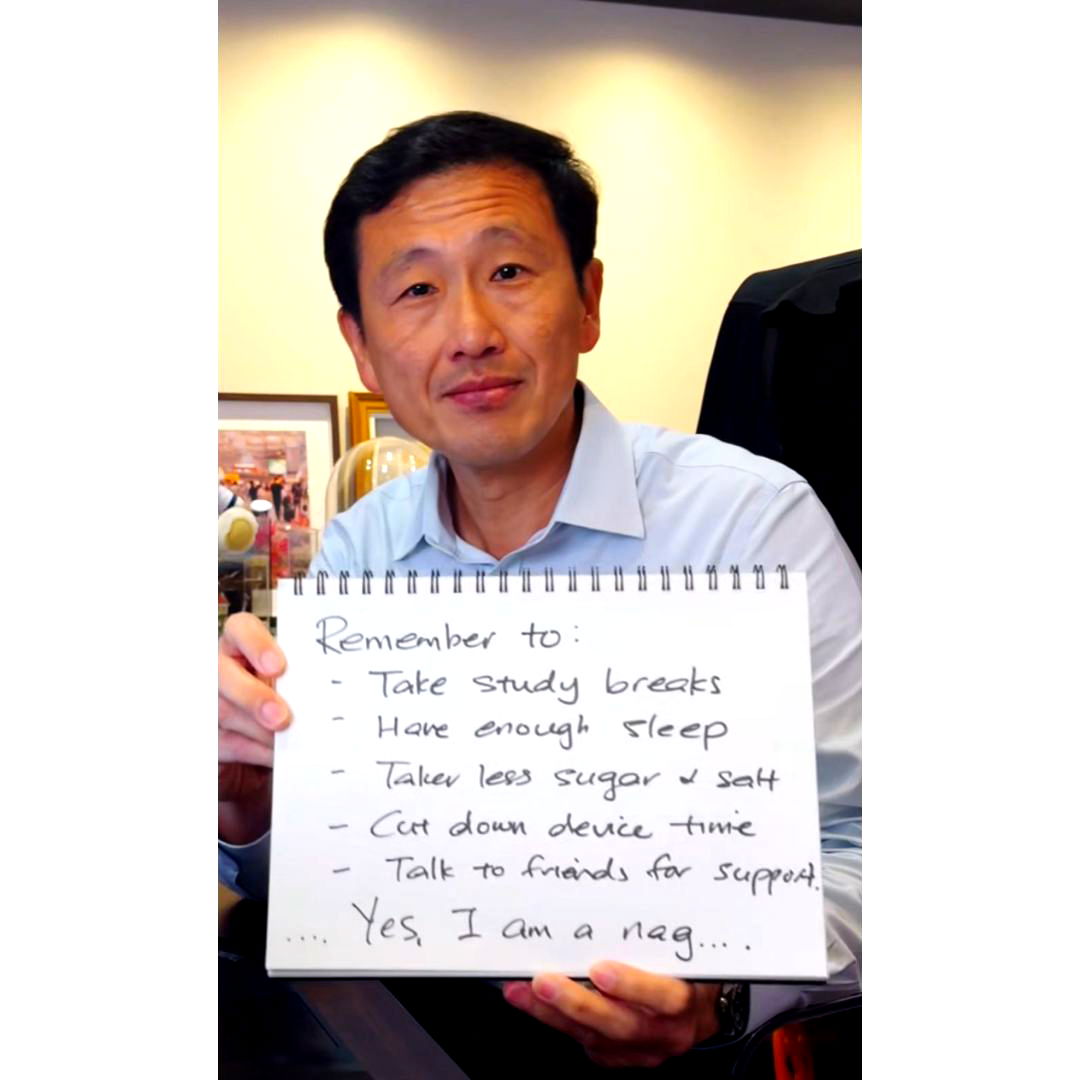 Remember to:
- Take study breaks
- Have enough sleep
- Taker less sugar & salt
- Cut down device time
- Talk to friends for support.
.... Yes, I am a nag....